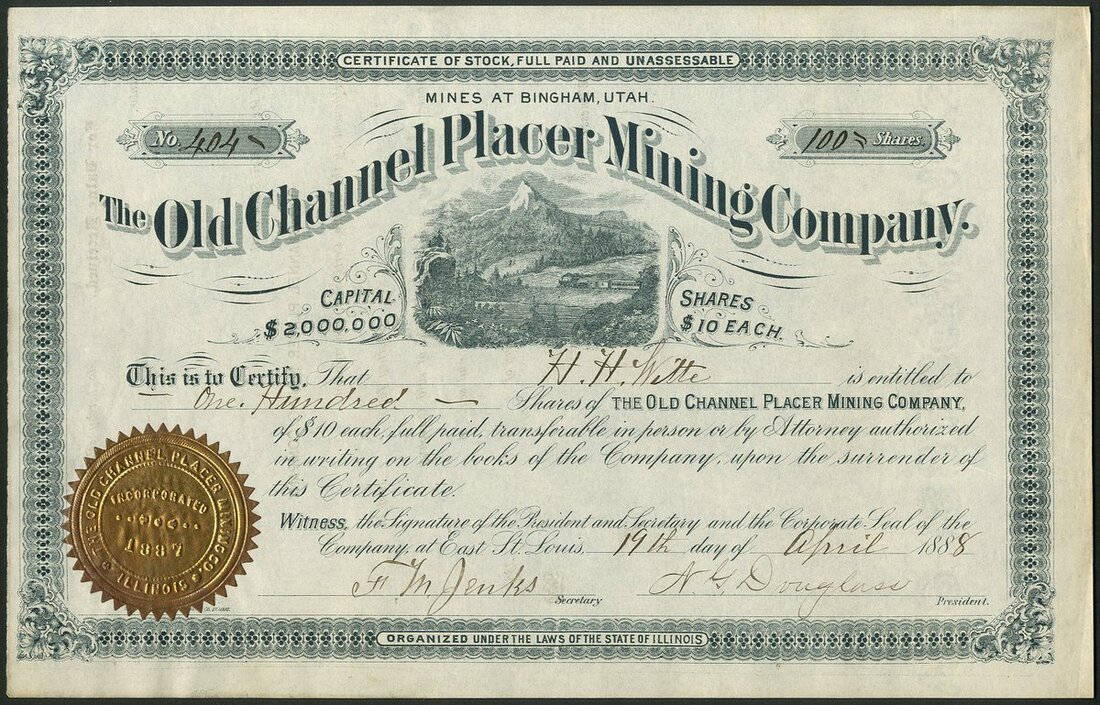 CERTIFICATE OF STOCK, FULL PAID AND UNASSESSABLE
MINES AT BINGHAM, UTAH.
No. 404
100 Shares
The Old Channel Placer Mining Company.
CAPITAL
$2,000,000
SHARES
$10 EACH.
This is to Certify, That H. H. Witte is entitled to
One Hundred Shares of THE OLD CHANNEL PLACER MINING COMPANY,
of $10 each, full paid, transferable in person or by Attorney authorized
in writing on the books of the Company, upon the surrender of
this Certificate.
Witness, the Signature of the President and Secretary and the Corporate Seal of the
Company, at East St. Louis, 19th day of April 1888
F M Jenks
Secretary
N. G. Douglass
President.
THE OLD CHANNEL PLACER MINING CO.
INCORPORATED
1887
ILLINOIS
ORGANIZED UNDER THE LAWS OF THE STATE OF ILLINOIS